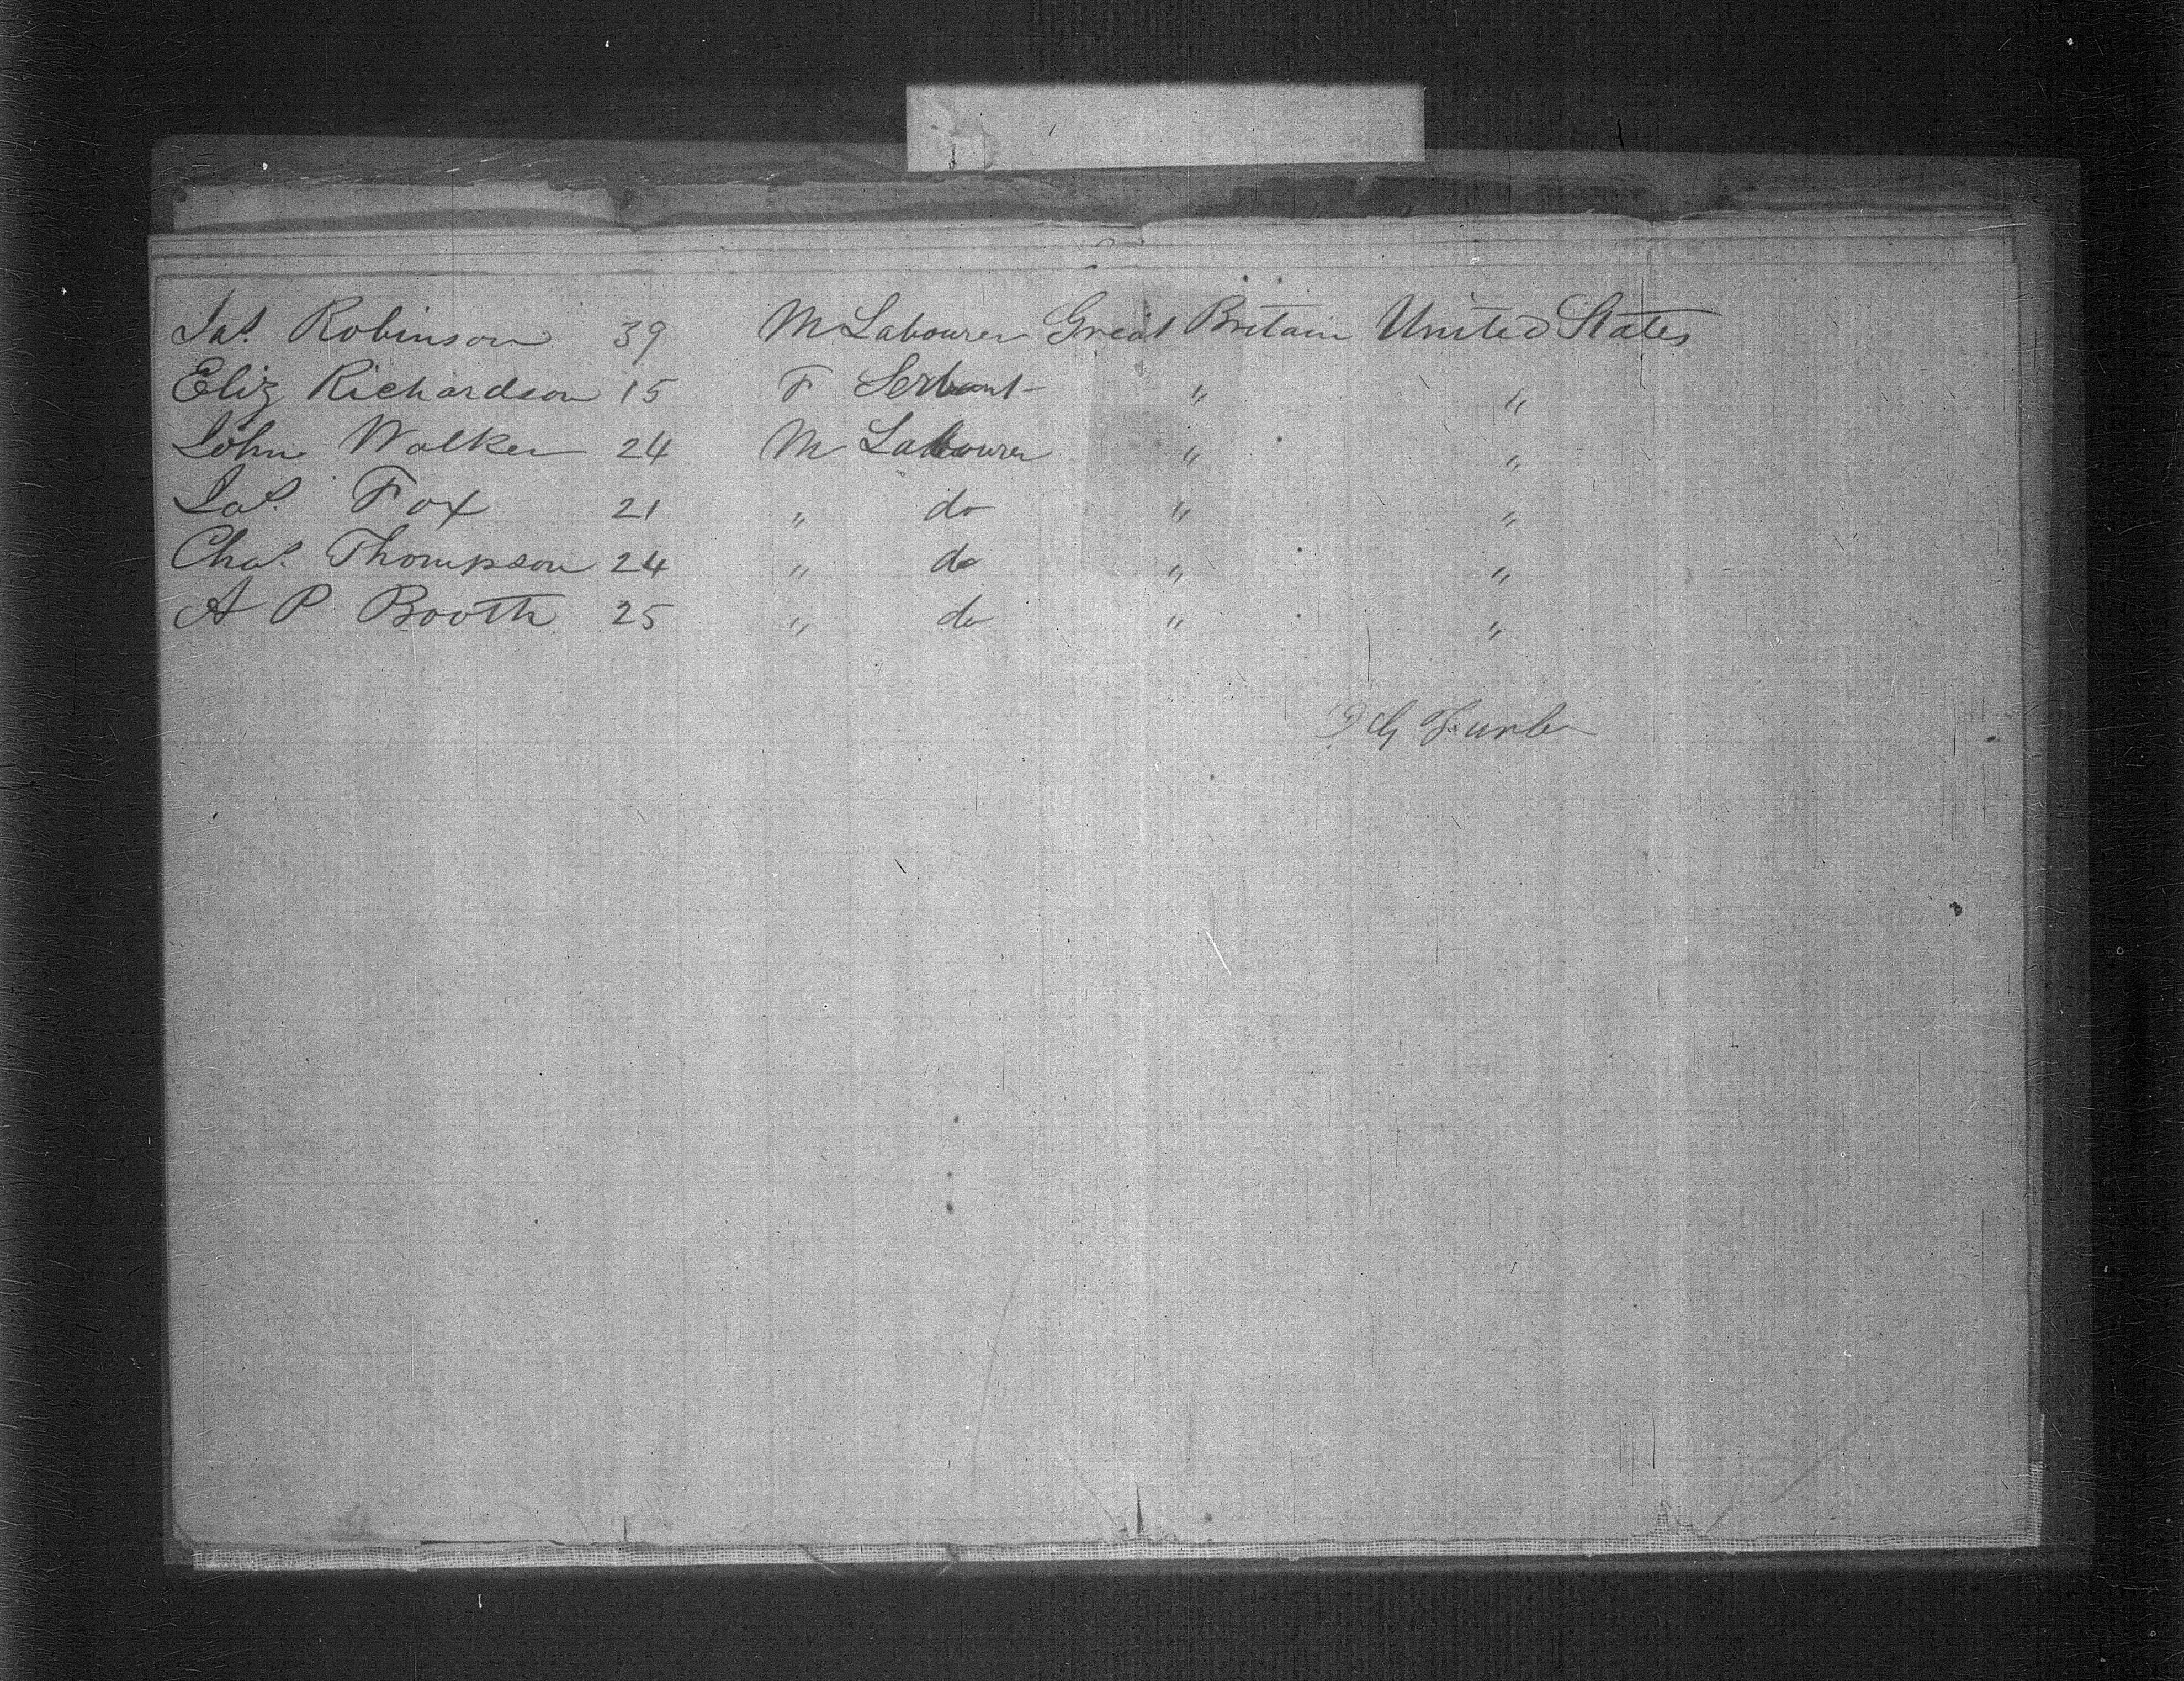 Jas. Robinson 39 M Labourer Great Britain United States
Eliz Richardson 15 F Servant " "
John Walker 24 M Labourer " "
Jas. Fox 21 " do " "
Chas. Thompson 24 " do " "
A P Booth 25 " do " "
G Furber